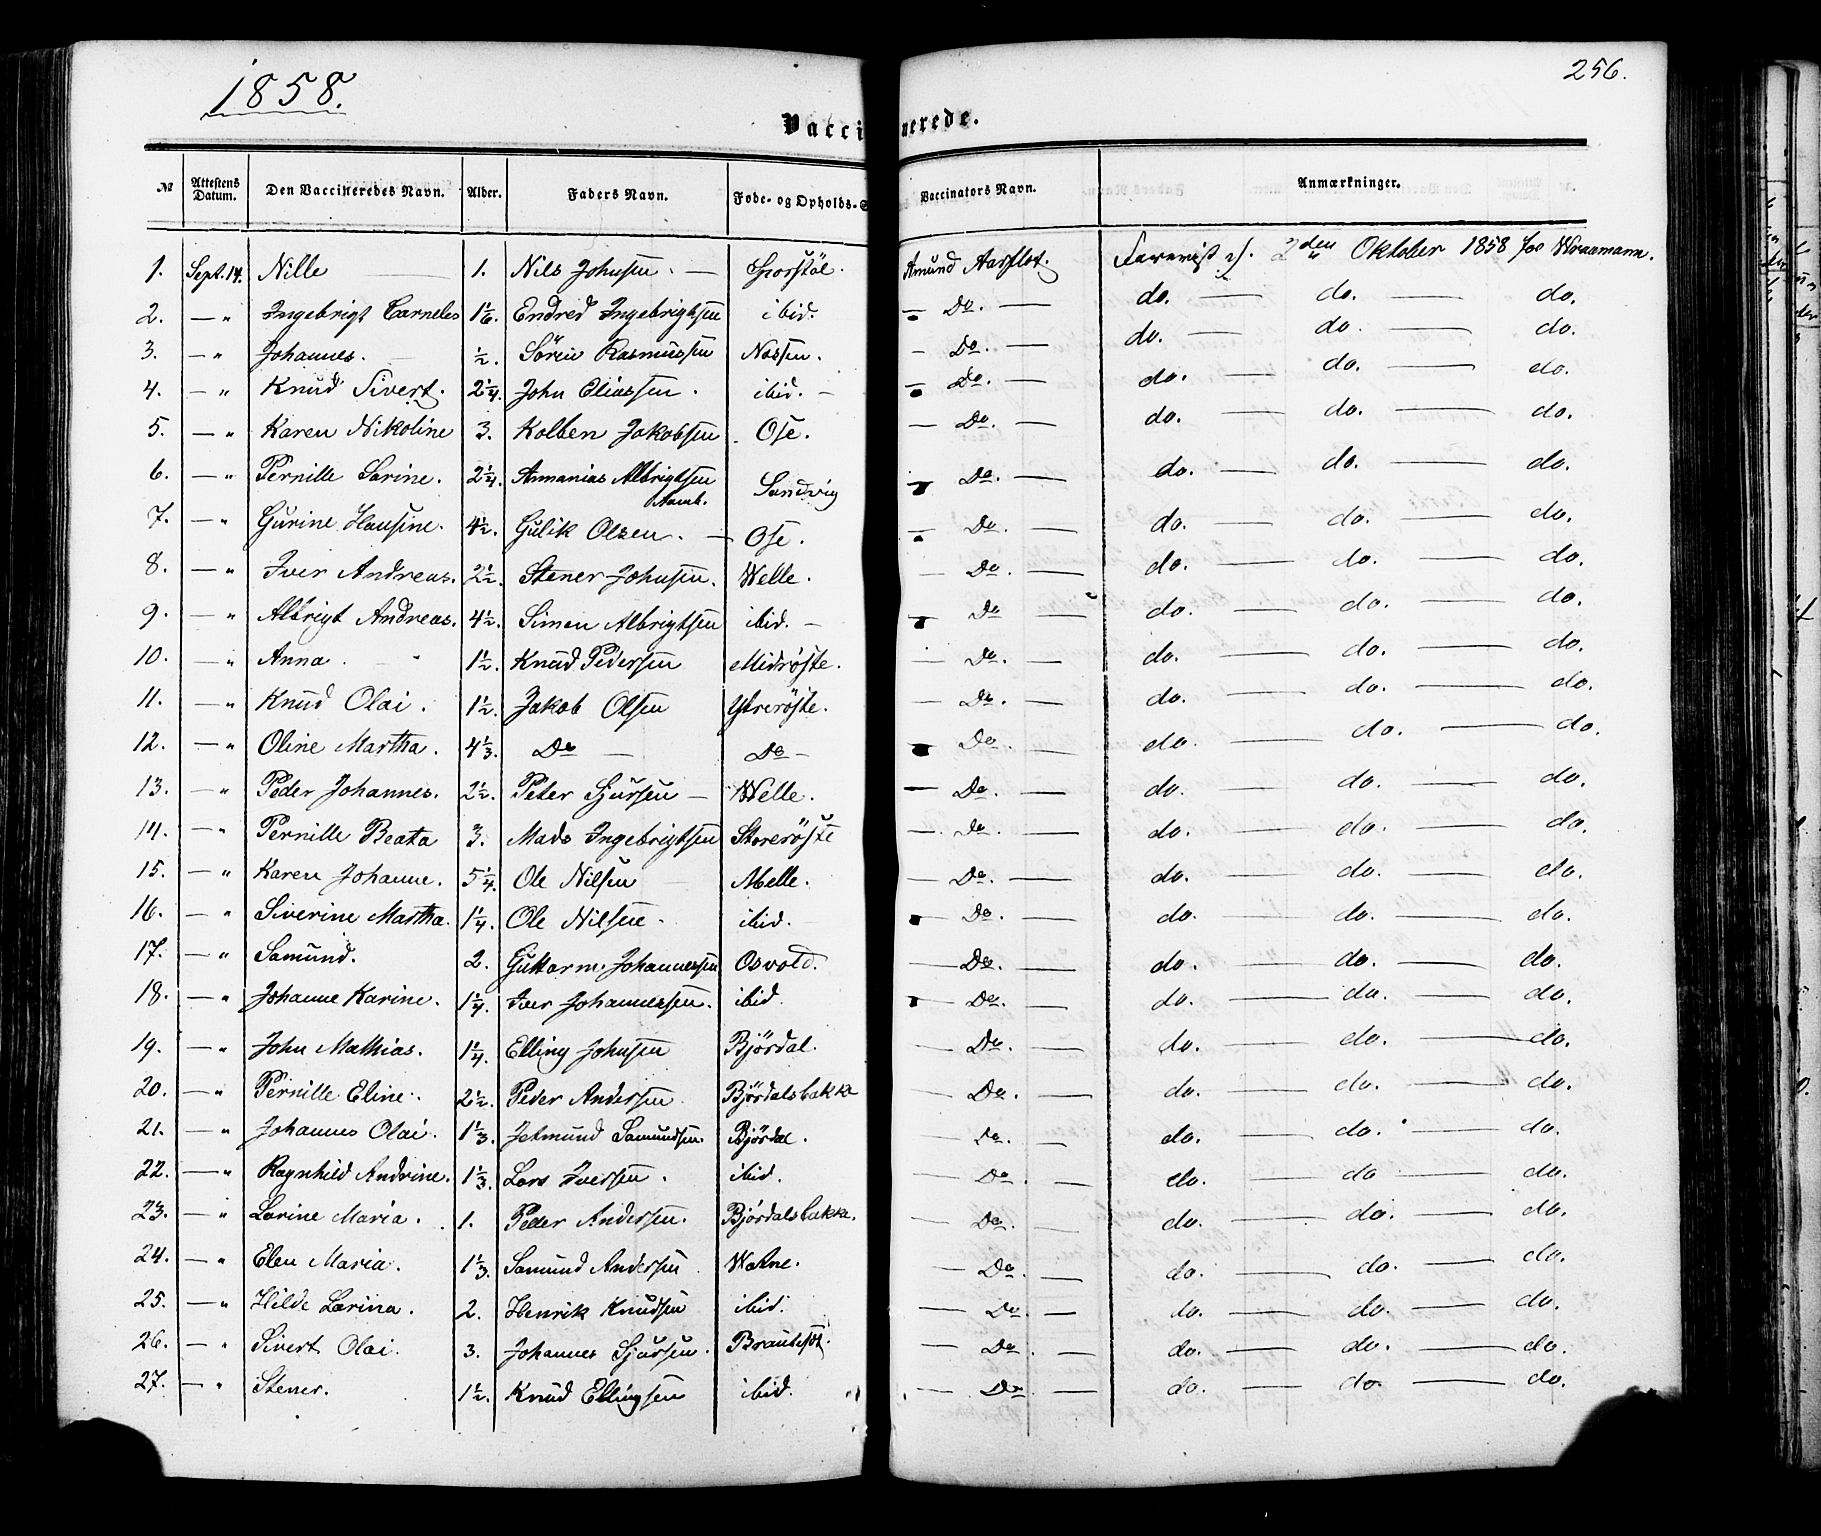 1858.
256.
Vaccinerede.
№ Attestens Datum. Den Vaccineredes Navn. Alder. Faders Navn. Føde- og Opholds-S Vaccinators Navn. Anmærkninger.
1. Sept. 14. Nille 1. Nils Johnsen. — Sporstöl. Amund Aarflot. 2den Oktober 1858 for
2. — „ Ingebrigt Corneles 1 1/6 Endred Ingebrigtsen ibid. — Do. — do. — do. — do.
3. — „ Johannes. — 1/2. Sören Rasmussen Nossen. — Do. — do. — do. — do.
4. — „ Knud Sivert. 2 1/4. John Eliassen. ibid. — — Do. — do. — do. — do.
5. — „ Karen Nikoline 3. Kolben Jakobsen. Ose. — Do. — do. — do. — do.
6. — „ Pernille Sarine. 2 1/4. Annanias Albrigtsen Aamb. Sandvig — Do. — do. — do. — do.
7. — „ Gurine Hansine. 4 1/2. Gulik Olsen. — Ose. — Do. — do. — do. — do.
8. — „ Iver Andreas. 2 1/2. Stener Johnsen. Welle. — Do. — do. — do. — do.
9. — „ Albrigt Andreas. 4 1/2. Simen Albrigtsen ibid. — — Do. — do. — do. — do.
10. — „ Anna. 1 1/2. Knud Pedersen Midrøjte. — Do. — do. — do. — do.
11. — „ Knud Olai. 1 1/2. Jakob Olsen Ytrerøjte. — Do. — do. — do. — do.
12. — „ Oline Martha. 4 1/3. Do — Do — — Do. — do. — do. — do.
13. — „ Peder Johannes. 2 1/2. Peter Sjursen — Welle. — Do. — do. — do. — do.
14. — „ Pernille Beata 3. Mads Ingebrigtsen Storerøjte — Do. — do. — do. — do.
15. — „ Karen Johanne. 5 1/4. Ole Nilsen — Melle. — Do. — do. — do. — do.
16. — „ Siverine Martha. 1 1/4. Ole Nilsen. ibid. — Do. — do. — do. — do.
17. — „ Samund. 2. Guttorm. Johannessen Osvold. — Do. — do. — do. — do.
18. — „ Johanne Karine. 1 1/4. Iver Johannessen. ibid. — Do. — do. — do. — do.
19. — „ John Mathias. 1 1/4. Elling Johnsen Björdal. — Do. — do. — do. — do.
20. — „ Pernille Eline. 2 1/2. Peder Andersen Björdalsbakka — Do. — do. — do. — do.
21. — „ Johannes Olai. 1 1/3. Jetmund Samundsen. Björdal. — Do. — do. — do. — do.
22. — „ Ragnhild Andrine. 1 1/3. Lars Iversen. ibid. — Do. — do. — do — do.
23. — „ Larine Maria. 1. Peder Andersen. Björdalsbakka. — Do. — do. — do. — do.
24. — „ Elen Maria. 1 1/3. Samund Andersen Watne. — Do. — do. — do. — do.
25. — „ Hilde Larina. 2. Henrik Knudsen ibid. — Do — do. — do. — do.
26. — „ Sivert Olai. 3. Johannes Sjursen. — Do. — do. — do. — do.
27. — „ Stener. 1 1/2. Knud Ellingsen ibid. — Do. — do. — do. — do.